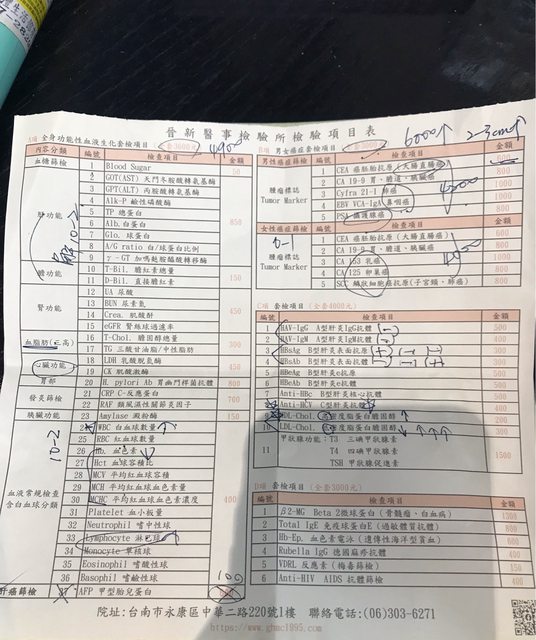 晉新醫事檢驗所檢驗項目表
A項 全身功能性血液生化套檢項目(全套3000元) 4900
內容分類 編號 檢查項目 金額
血糖篩檢 1 Blood Sugar 50
肝功能 850
2 GOT(AST) 天門冬胺酸轉氨基酶
3 GPT(ALT) 丙胺酸轉氨基酶
4 Alk-P 鹼性磷酸酶
5 TP 總蛋白
6 Alb. 白蛋白
7 Glo. 球蛋白
8 A/G ratio 白/球蛋白比例
9 γ-GT 加嗎麩胺醯酸轉移酶
膽功能 150
10 T-Bil. 膽紅素總量
11 D-Bil. 直接膽紅素
腎功能 450
12 UA 尿酸
13 BUN 尿素氮
14 Crea. 肌酸酐
15 eGFR 腎絲球過濾率
血脂肪(三高) 300
16 T-Chol. 膽固醇總量
17 TG 三酸甘油脂/中性脂肪
心臟功能 450
18 LDH 乳酸脫氫酶
19 CK 肌酸激酶
胃部 20 H. pylori Ab 胃幽門桿菌抗體 800
發炎篩檢 700
21 CRP C-反應蛋白
22 RAF 類風濕性關節炎因子
胰臟功能 23 Amylase 澱粉酶 150
血液常規檢查
含白血球分類 400
24 WBC 白血球數量 ↑
25 RBC 紅血球數量
26 Hb. 血色素 ↓
27 Hct 血球容積比
28 MCV 平均紅血球容積
29 MCH 平均紅血球血色素量
30 MCHC 平均紅血球血色素濃度
31 Platelet 血小板量
32 Neutrophil 嗜中性球
33 Lymphocyte 淋巴球
34 Monocyte 單核球
35 Eosinophil 嗜酸性球
36 Basophil 嗜鹼性球
肝癌篩檢 37 AFP 甲型胎兒蛋白 100
10-2
10-2
B項 男女癌症篩檢 (全套3000元) 6000↑
男性癌症篩檢 編號 檢查項目 金額
腫瘤標誌
Tumor Marker
1 CEA 癌胚胎抗原(大腸直腸癌) 600
2 CA 19-9 胃、膽道、胰臟癌 800
3 Cyfra 21-1 肺癌 1000
4 EBV VCA-IgA 鼻咽癌 800
5 PSA 攝護腺癌 800
女性癌症篩檢 編號 檢查項目 金額
腫瘤標誌
Tumor Marker
1 CEA 癌胚胎抗原(大腸直腸癌) 600
2 CA 19-9 胃、膽道、胰臟癌 800
3 CA 153 乳癌 800
4 CA 125 卵巢癌 800
5 SCC 鱗狀細胞癌抗原(子宮頸、肺癌) 1000
C項 套檢項目 (全套4000元)
編號 檢查項目 金額
1 HAV-IgG A型肝炎IgG抗體 500
2 HAV-IgM A型肝炎IgM抗體 400
3 HBsAg B型肝炎表面抗原 300
4 HBsAb B型肝炎表面抗體 300
5 HBeAg B型肝炎e抗原 500
6 HBeAb B型肝炎e抗體 500
7 Anti-HBc B型肝炎核心抗體 500
8 Anti-HCV C型肝炎抗體 500
9 HDL-Chol. 高密度脂蛋白膽固醇 ↑ 200
10 LDL-Chol. 低密度脂蛋白膽固醇 ↑↑↑ 300
11 甲狀腺功能: T3 三碘甲狀腺素 1500
T4 四碘甲狀腺素
TSH 甲狀腺促進素
D項 套檢項目 (全套3000元)
編號 檢查項目 金額
1 β2-MG Beta 2微球蛋白(骨髓瘤、白血病) 1300
2 Total IgE 免疫球蛋白E(過敏體質抗體) 800
3 Hb-Ep. 血色素電泳(遺傳性海洋型貧血) 600
4 Rubella IgG 德國麻疹抗體 400
5 VDRL 反應素(梅毒篩檢) 150
6 Anti-HIV AIDS 抗體篩檢 400
院址:台南市永康區中華二路220號1樓 聯絡電話:(06)303-6271
https://www.ghmc1995.com